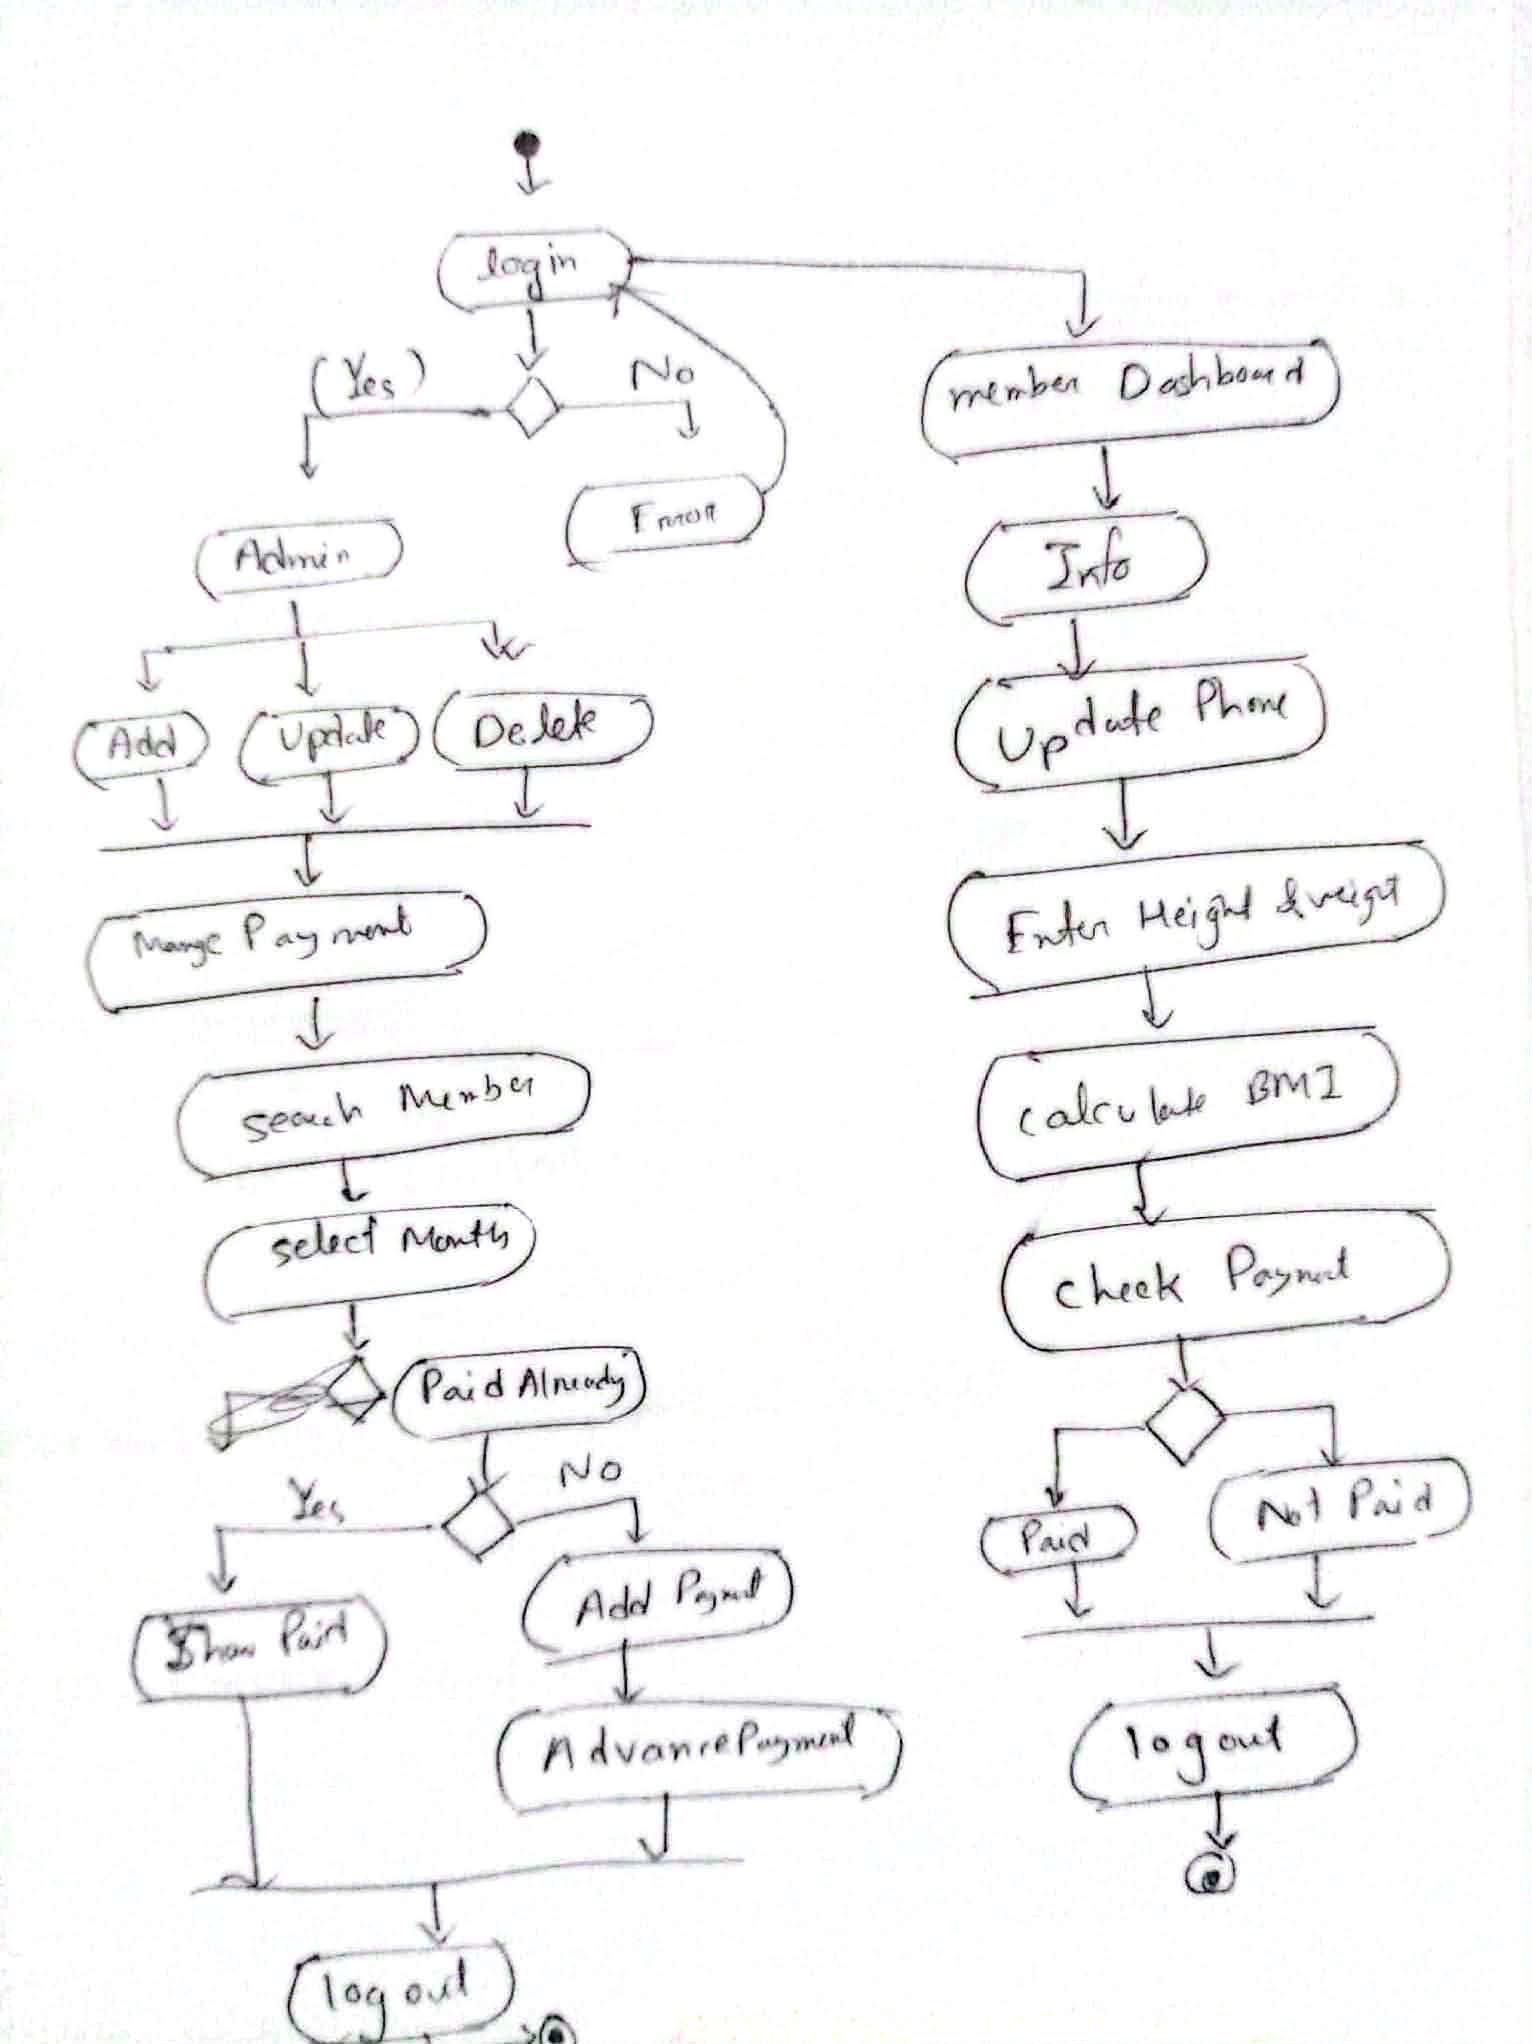 login
(Yes)
No
Error
Admin
Add
Update
Delete
Mange Payment
Search Member
Select Month
Paid Already
Yes
No
Show Paid
Add Payment
Advance Payment
logout
member Dashboard
Info
Update Phone
Enter Height & weight
Calculate BMI
Check Payment
Paid
Not Paid
logout